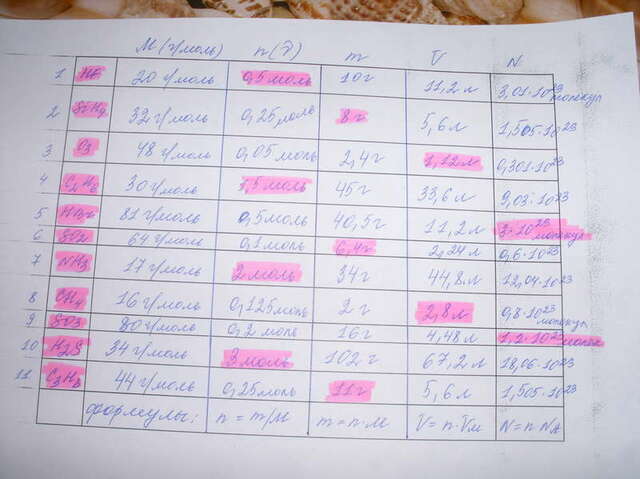 M (г/моль) n (ν) m V N
1 HF 20 г/моль 0,5 моль 10 г 11,2 л 3,01·10²³ молекул
2 SiH₄ 32 г/моль 0,25 моль 8 г 5,6 л 1,505·10²³
3 O₃ 48 г/моль 0,05 моль 2,4 г 1,12 л 0,301·10²³
4 C₂H₆ 30 г/моль 1,5 моль 45 г 33,6 л 9,03·10²³
5 HBr 81 г/моль 0,5 моль 40,5 г 11,2 л 3·10²³ молекул
6 SO₂ 64 г/моль 0,1 моль 6,4 г 2,24 л 0,6·10²³
7 NH₃ 17 г/моль 2 моль 34 г 44,8 л 12,04·10²³
8 CH₄ 16 г/моль 0,125 моль 2 г 2,8 л 0,8·10²³ молекул
9 SO₃ 80 г/моль 0,2 моль 16 г 4,48 л 1,2·10²³ молек
10 H₂S 34 г/моль 3 моль 102 г 67,2 л 18,06·10²³
11 C₃H₈ 44 г/моль 0,25 моль 11 г 5,6 л 1,505·10²³
формулы: n = m/M m = n·M V = n·Vм N = n·NA